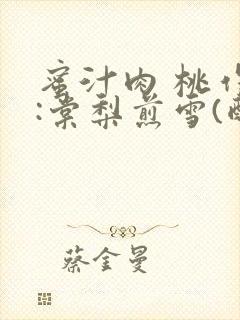 蜜汁肉桃作
:棠梨煎雪(
蔡金曼